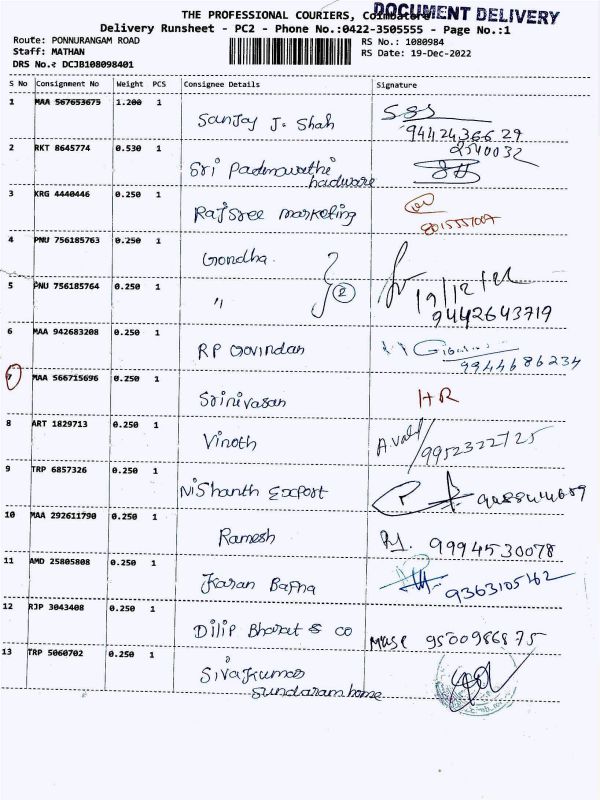 THE PROFESSIONAL COURIERS, Coimbatore
DOCUMENT DELIVERY
Delivery Runsheet - PC2 - Phone No.:0422-3505555 - Page No.:1
Route: PONNURANGAM ROAD
RS No.: 1080984
Staff: MATHAN
RS Date: 19-Dec-2022
DRS No.: DCJB108098401
S No Consignment No Weight PCS Consignee Details Signature
1 MAA 567653675 1.200 1 Sanjay J. Shah
9442436629
2 RKT 8645774 0.530 1 2540032
Sri Padmavathi
hardware
3 KRG 4440446 0.250 1 Rajsree marketing
4 PNU 756185763 0.250 1 Gondha
5 PNU 756185764 0.250 1 " 2 19/12/22
9442643719
6 MAA 942683208 0.250 1 RP Govindan
9944686234
7 MAA 566715696 0.250 1 Srinivasan HR
8 ART 1829713 0.250 1 Vinoth 9952322725
9 TRP 6857326 0.250 1 Nishanth Export
10 MAA 292611790 0.250 1 Ramesh 9994530078
11 AMD 25805808 0.250 1 Karan Bafna 9363105162
12 RJP 3043408 0.250 1 Dilip Bharat & co 9500986875
13 TRP 5060702 0.250 1 Sivakumar
Sundaram home